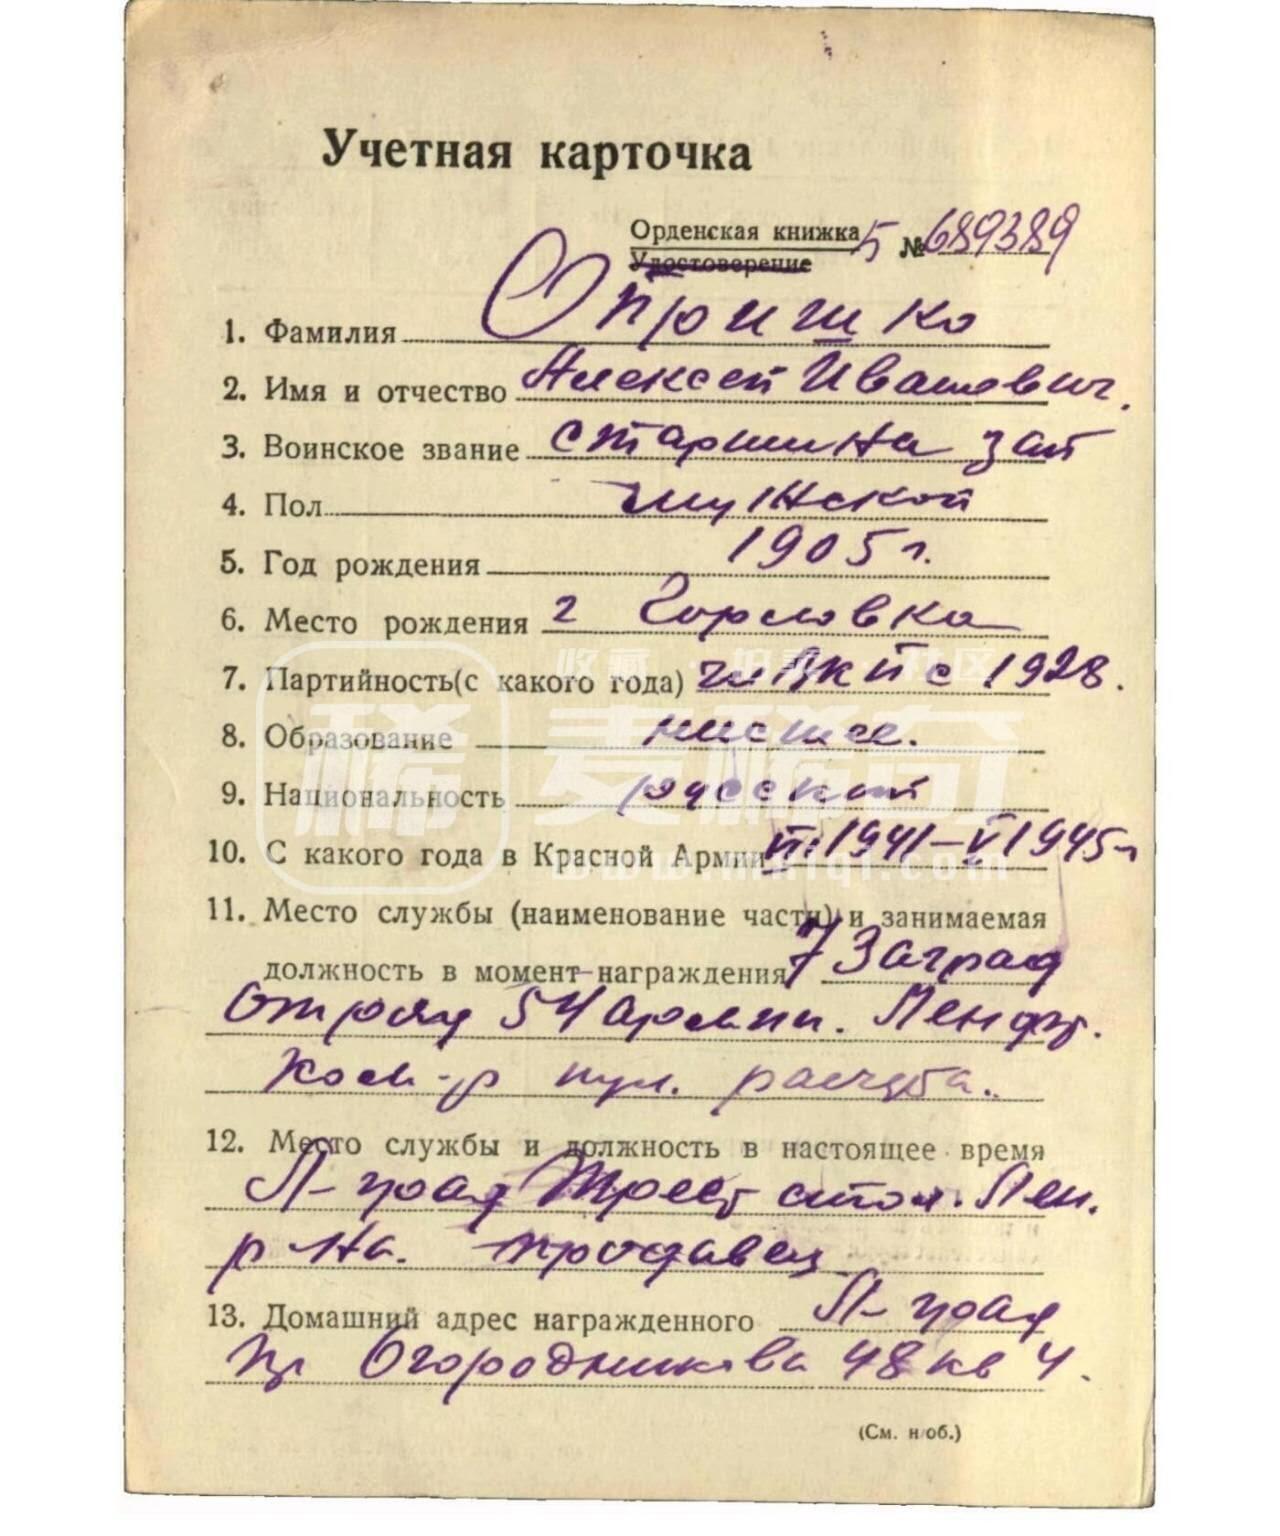 Учетная карточка
Орденская книжка Б № 689389
Удостоверение
1. Фамилия Опришко
2. Имя и отчество Алексей Иванович.
3. Воинское звание старшина зап
4. Пол мужской
5. Год рождения 1905 г.
6. Место рождения г Горловка
收藏 · 拍卖 · 社区
7. Партийность (с какого года) чл ВКП с 1928.
稀 麦稀奇
8. Образование низшее.
9. Национальность русский
10. С какого года в Красной Армии 1941–V 1945 г
11. Место службы (наименование части) и занимаемая
должность в момент награждения 7 Заград
отряд 54 армии. Лен фр.
ком-р пул. расчета.
12. Место службы и должность в настоящее время
Л-град Трест стол. Лен.
р-на. продавец
13. Домашний адрес награжденного Л-град
пр Огородникова 48 кв 4.
(См. н/об.)